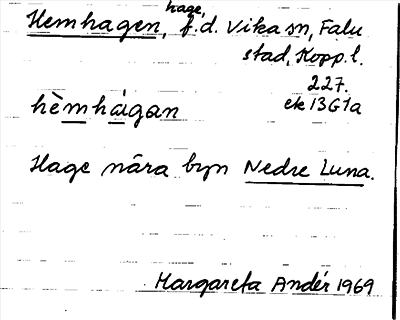 Hemhagen, hage, f.d. Vika sn, Falu
stad, Kopp. l.
227.
ek 13G1a
hèmhàgan
Hage nära byn Nedre Luna.
Margareta Andér 1969